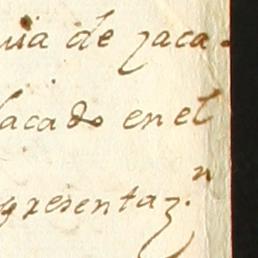 uia de zaca-
lacado en el
presentaz.n